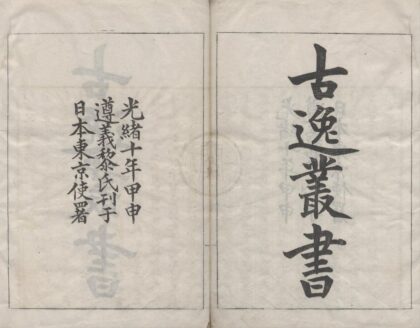 古逸叢書
光緒十年甲申
遵義黎氏刊于
日本東京使署